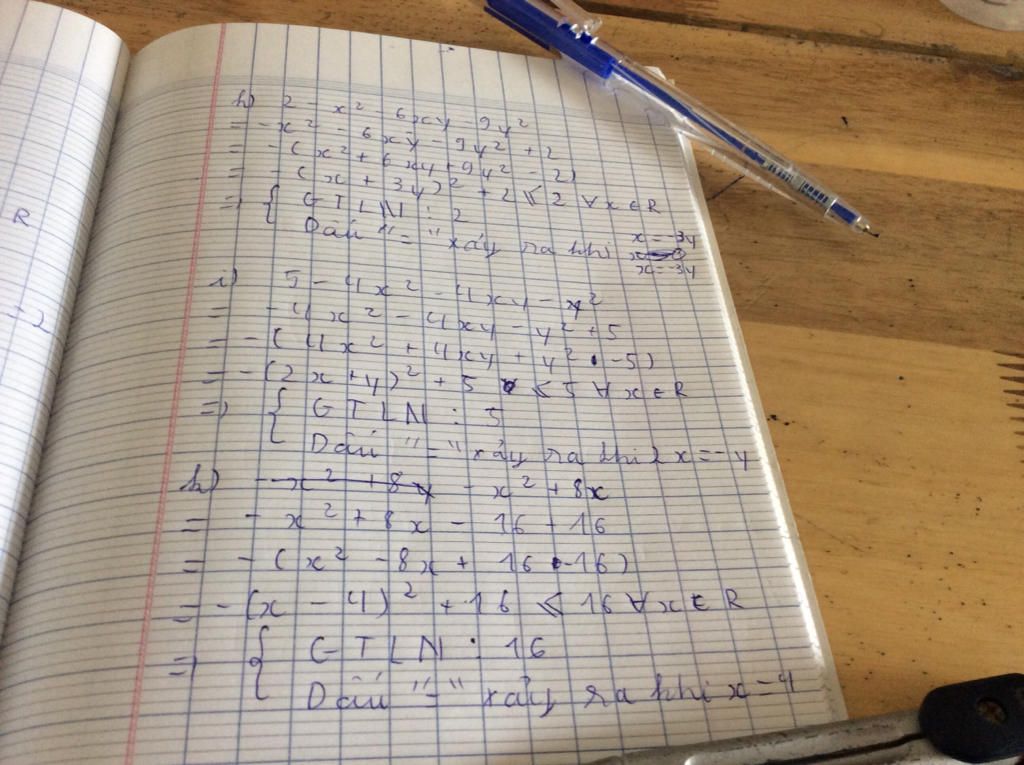 R
-2
h) 2 - x² - 6xy - 9y²
= -x² - 6xy - 9y² + 2
= -(x² + 6xy + 9y² - 2)
= -(x + 3y)² + 2 ≤ 2 ∀ x ∈ R
=> { GTLN : 2
Dấu "=" xảy ra khi x = -3y
x = -3y
i) 5 - 4x² - 4xy - y²
= -4x² - 4xy - y² + 5
= -(4x² + 4xy + y² - 5)
= -(2x + y)² + 5 ≤ 5 ∀ x ∈ R
=> { GTLN : 5
Dấu "=" xảy ra khi 2x = -y
k) -x² + 8x
= -x² + 8x - 16 + 16
= -(x² - 8x + 16 - 16)
= -(x - 4)² + 16 ≤ 16 ∀ x ∈ R
=> { GTLN : 16
Dấu "=" xảy ra khi x = 4